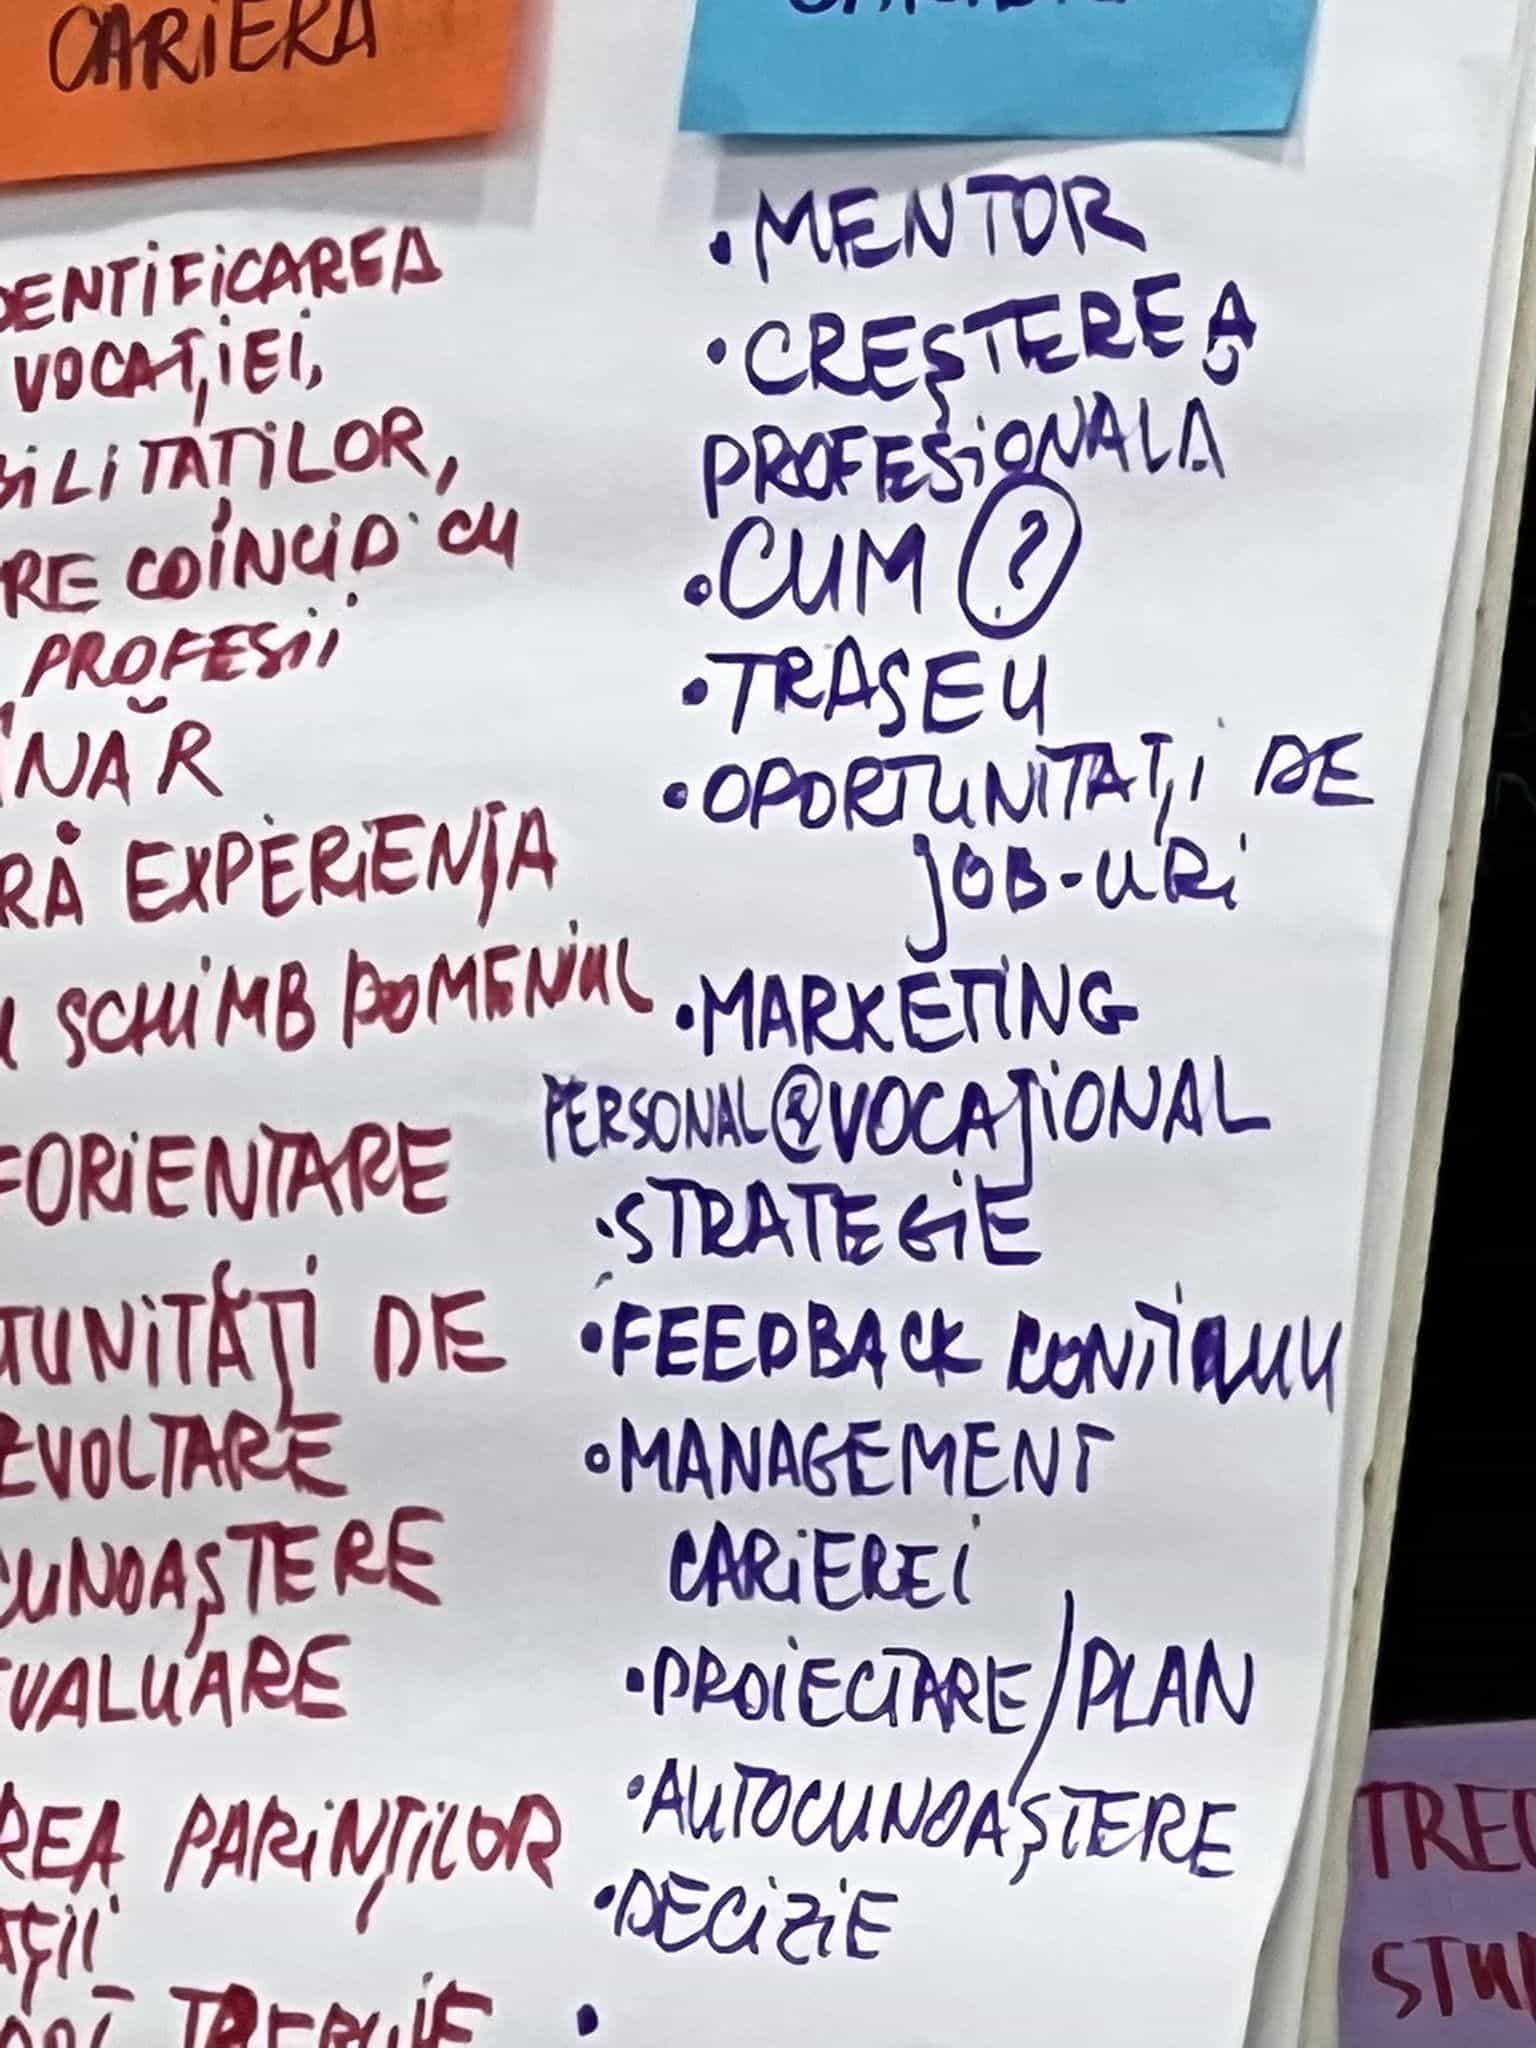 CARIERA
DENTIFICAREA
VOCAȚIEI,
BILITĂȚILOR,
RE COINCID CU
PROFESII
ÎNĂR
RĂ EXPERIENȚA
SCHIMB DOMENIUL
FORIENTARE
TUNITĂȚI DE
EZVOLTARE
CUNOAȘTERE
EVALUARE
REA PARINȚILOR
TREBUIE
• MENTOR
• CREȘTEREA
PROFESIONALA
• CUM ?
• TRASEU
• OPORTUNITAȚI DE
JOB-URI
• MARKETING
PERSONAL @ VOCAȚIONAL
• STRATEGIE
• FEEDBACK CONTINUU
• MANAGEMENT
CARIEREI
• PROIECTARE/PLAN
• AUTOCUNOAȘTERE
• DECIZIE
•
TREC
STUD